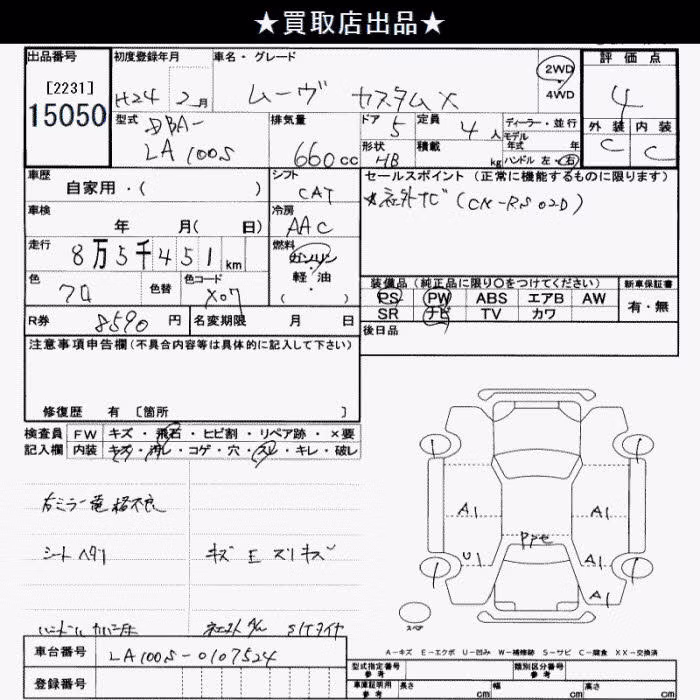 ★買取店出品★
出品番号 初度登録年月 車名・グレード 2WD 評価点
[2231] H24 2月 ムーヴ カスタムX 4WD 4
15050 型式 DBA- 排気量 ドア 5 定員 4人 ディーラー・並行 外装 内装
LA100S 660cc 形状 HB 積載 kg モデル年式 年 C C
ハンドル 左・右
車歴 シフト セールスポイント(正常に機能するものに限ります)
自家用・( ) CAT ★社外ナビ(CK-RS02D)
車検 冷房
年 月( 日) AAC
走行 燃料
8万5千451km ガソリン
軽・油
色 色替 色コード ( ) 装備品(純正品に限り○をつけてください) 新車保証書
クロ X07 PS PW ABS エアB AW 有・無
R券 8590円 名変期限 月 日 SR ナビ TV カワ
注意事項申告欄(不具合内容等は具体的に記入して下さい) 後日品
修復歴 有 [箇所 ]
検査員 FW キズ・飛石・ヒビ割・リペア跡・×要
記入欄 内装 キズ・汚レ・コゲ・穴・スレ・キレ・破レ
右ミラー電格不良
シートヘタリ キズ E スリキズ
A1 A1
PPe
U1 A1
A1
スペア
A-キズ E-エクボ U-凹み W-補修跡 S-サビ C-腐食 XX-交換済
車台番号 LA100S-0107524 型式指定番号 参考 類別区分番号 参考
登録番号 車庫証明用 参考 長さ cm 幅 cm 高さ cm